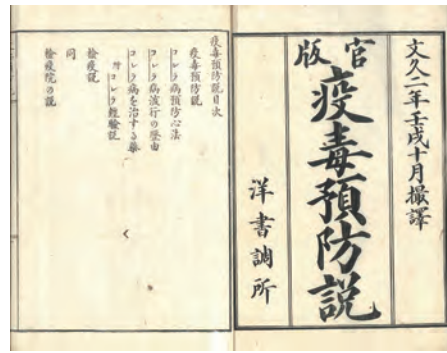 文久二年壬戌十月撮譯
官版
疫毒預防説
洋書調所
疫毒預防説目次
疫毒預防説
コレラ病預防心法
コレラ病流行の歴由
コレラ病を治する藥
附コレラ經驗説
檢疫説
同
檢疫院の説